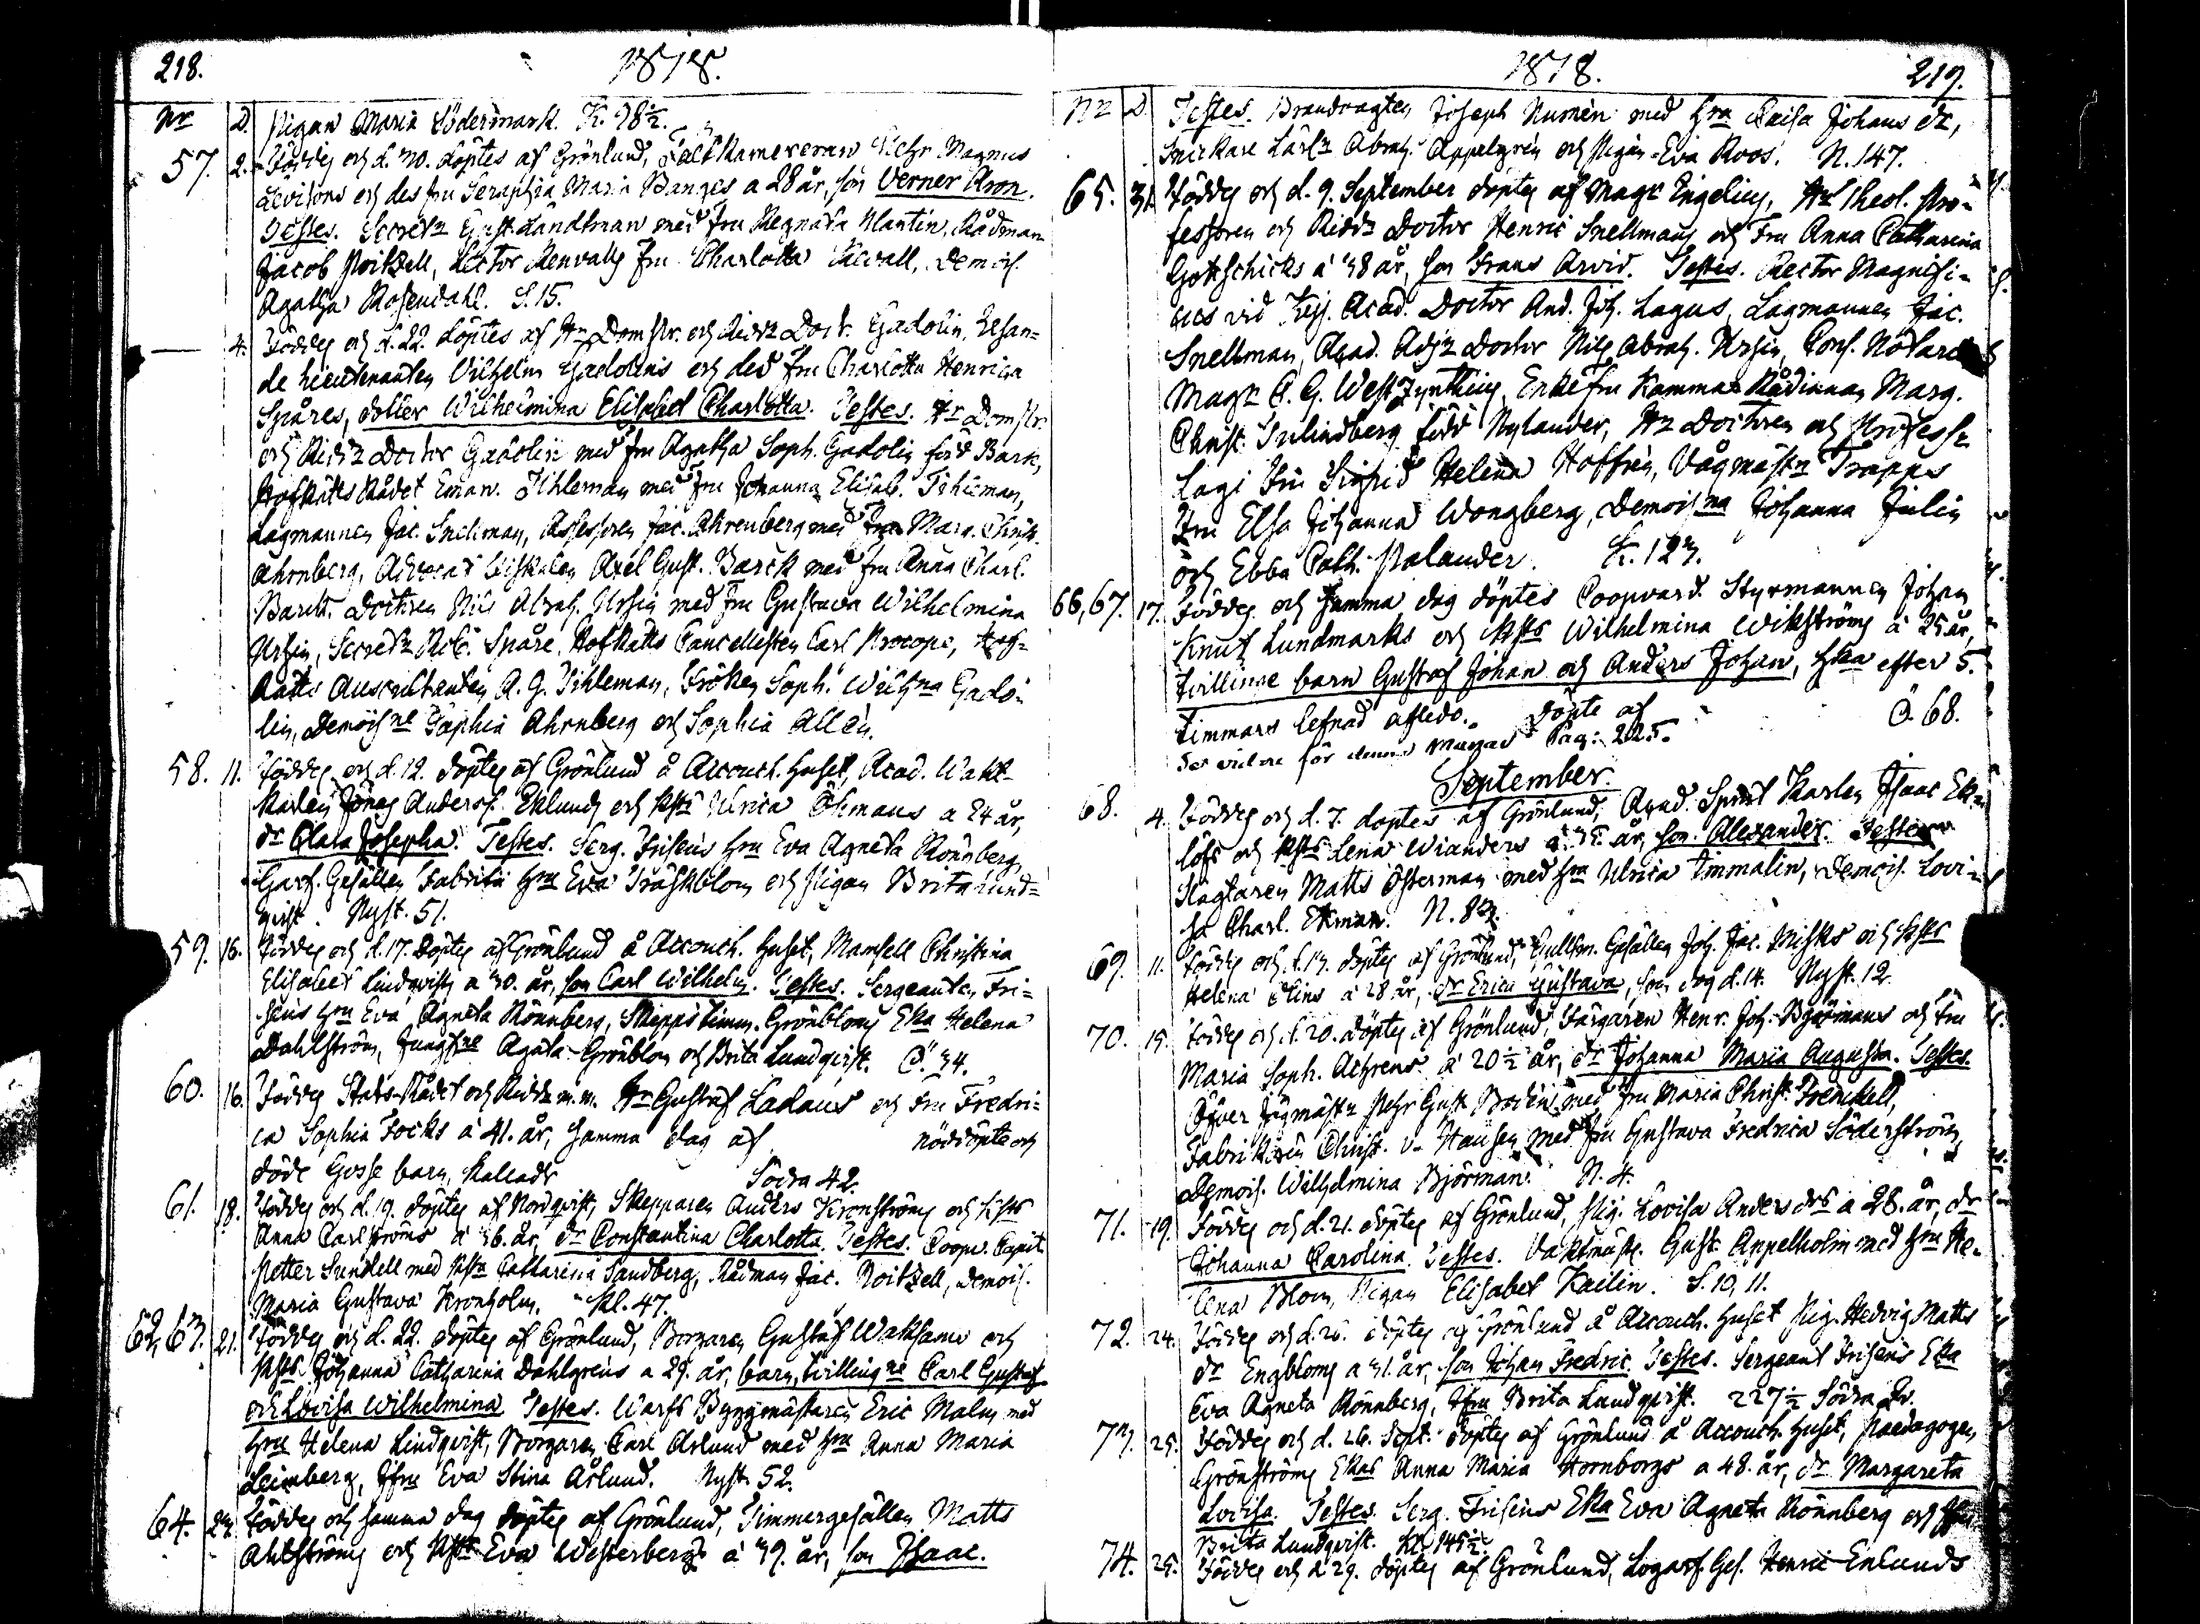 218. 1818.
Nr D. Pigan Maria Södermark. K. 98½.
57. 2. Föddes och d. 30. döptes af Grönlund, Fält Kamereraren Petr. Magnus
Levisons och des fru Seraphia Maria Banges a 28 år, son Verner Aron.
Testes. Secret. Gust. Landtman med fru Regnata Martin, Rådman
Jacob Roitzell, Rector Renvalls fru Charlotta Kjervall, Demois.
Agatha Rosendahl. S. 15.
4. Föddes och d. 22. döptes af Hr Dompr. och Ridd. Doct. Gadolin, Resan-
de Lieutenanten Vilhelm Gadolins och des fru Charlotta Henrica
Spåres, dotter Wilhelmina Elisabet Charlotta. Testes. Hr Dompr.
och Ridd. Doctor Gadolin med fru Agatha Soph. Gadolin född Bark,
Hofrätts Rådet Eman. Tihleman med fru Johanna Elisab. Tihleman,
Lagmannen Jac. Snellman, Assessoren Jac. Ahrenberg med fru Marg. Christ.
Ahrnberg, Advocat Fiskalen Axel Gust. Barck med fru Anna Charl.
Barck. Doctoren Nils Abrah. Ursin med fru Gustava Wilhelmina
Ursin, Secret. Rob. Spåre, Hofrätts Cancellisten Carl Procope, Hof-
Rätts Auscultanten A. G. Tihleman, Fröken Soph. Wilhna Gado-
lin, Demoisne Sophia Ahrnberg och Sophia Allén.
58. 11. Föddes och d. 12. döptes af Grönlund å Accouch. huset, Acad. Wakt-
karlen Jonas Anders. Eklunds och hustr. Ulrica Öhmans a 24 år,
dr Clara Josepha. Testes. Serg. Frisens hru Eva Agneta Rönnberg,
Garf. Gesällen Fabritii hru Eva Träskblom och Pigan Brita Lund-
qvist. Nyst. 51.
59. 16. Föddes och d. 17. döptes af Grönlund å Accouch. huset, Mamsell Christina
Elisabet Lindqvists a 30. år, son Carl Wilhelm. Testes. Sergeanten Fri-
sens hru Eva Agneta Rönnberg, Skepps Timm. Grönbloms Eka Helena
Dahlström, Jungfne Agata Grönblom och Brita Lundqvist. Ö. 34.
60. 16. Föddes Stats-Rådet och Ridd. m.m. Hr Gustaf Ladaus och Fru Fredri-
ca Sophia Focks a 41. år, samma dag af nöddöpte och
döde Gosse barn, kallade Södra 42.
61. 18. Föddes och d. 19. döptes af Nordqvist, Skepparen Anders Kronströms och hustr.
Anna Carlströms a 36. år, dr Constantina Charlotta. Testes. Coopv. Capit.
Petter Sundell med hustru Catharina Sandberg, Rådman Jac. Roitzell, Demois.
Maria Gustava Kronholm. Kl. 47.
62, 63. 21. Föddes och d. 22. döptes af Grönlund, Borgaren Gustaf Waksams och
hustr. Johanna Catharina Dahlgrens a 29. år, barn, tvillingne Carl Gustaf
och Lovisa Wilhelmina. Testes. Warfs Byggmästaren Eric Malm med
hru Helena Lindqvist, Borgaren Carl Arlund med hru Anna Maria
Leimberg, Jfru Eva Stina Ärlund. Nyst. 52.
64. 23. Föddes och samma dag döptes af Grönlund, Timmergesällen Matts
Ahlströms och hustr. Eva Westerbergs a 39. år, son Isaac.
1818. 219.
Nr D Testes. Brandvagten Joseph Numén med hru Caisa Johans dr,
Snickare Lärl. Abrah. Appelgren och Pigan Eva Roos. N. 147.
65. 31. Föddes och d. 9. September döptes af Magr Engelius, Hr Theol. Pro-
fessoren och Ridd. Doctor Henric Snellmans och Fru Anna Catharina
Gottschicks a 38 år, son Frans Arvid. Testes. Rector Magnifi-
cus vid Kejs. Acad. Doctor And. Joh. Lagus, Lagmannen Jac.
Snellman, Acad. Adj. Doctor Nils Abrah. Ursin, Cons. Notar
Magr C. G. Westzynthius, Enkefru Kammar Rådinnan Marg.
Christ. Julindberg född Nylander, Hr Doctoren och Profess.
Lagi Fru Sigrid Helena Hoffrén, Vågmäst. Trapps
Fru Elsa Johanna Wongberg, Demoisna Johanna Julin
och Ebba Cath. Palander. K. 123.
66, 67. 17. Föddes och samma dag döptes Coopvard. Styrmannen Johan
Knut Lundmarks och hustr. Wilhelmina Wikströms a 25 år,
tvillinge barn Gustaf Johan och Anders Johan, hka efter 5.
timmars lefnad afledo. döpte af Ö. 68.
Se vidare för denna Månad Pag: 225.
September.
68. 4. Föddes och d. 7. döptes af Grönlund, Acad. Sprut Karlen Isaac Ek-
löfs och hustr. Lena Wianders a 35. år, son Alexander. Testes
Slagtaren Matts Österman med hru Ulrica Timmalin, Demois. Lovi-
sa Charl. Ekman. N. 83.
69. 11. Föddes och d. 13. döptes af Grönlund, Gullsm. Gesällen Joh. Jac. Misks och hustr.
Helena Elins a 28 år, dr Erica Gustava, som dog d. 14. Nyst. 12.
70. 15. Föddes och d. 20. döptes af Grönlund, Färgaren Henr. Joh. Björmans och Fru
Maria Soph. Aehrens a 20½ år, dr Johanna Maria Augusta. Testes.
Öfver Jägmäst. Petr Gust. Bodin med fru Maria Christ. Frenckell,
Fabrikören Christ. v. Hausen med fru Gustava Fredrica Söderström,
Demois. Wilhelmina Björman. N. 4.
71. 19. Föddes och d. 21. döptes af Grönlund, Pig. Lovisa Anders drs a 28. år, dr
Johanna Carolina. Testes. Vaktmäst. Gust. Appelholm med hru He-
lena Blom, Pigan Elisabet Kailin. S. 10, 11.
72. 24. Föddes och d. 26. döptes af Grönlund å Accouch. huset Pig. Hedvig Matts
dr Engbloms a 31. år, son Johan Fredric. Testes. Sergeant Frisens Eka
Eva Agneta Rönnberg, Jfru Brita Lundqvist. 227½ Södra Qv.
73. 25. Föddes och d. 26. Sept. döptes af Grönlund å Accouch. huset, Paedagogen
Grönströms Ekas Anna Maria Hornborgs a 48. år, dr Margareta
Lovisa. Testes. Serg. Frisens Eka Eva Agneta Rönnberg och Jfru
Brita Lundqvist. Kl. 145½
74. 25. Föddes och d. 29. döptes af Grönlund, Logarf. Ges. Henric Enlunds